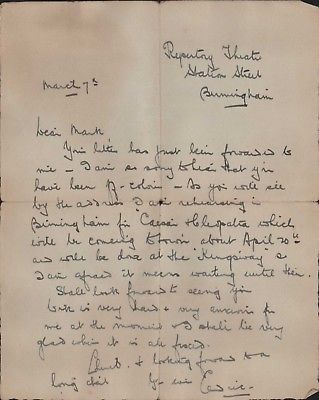 Repertory Theatre
Station Street
Birmingham
March 7th
Dear Mark
Your letter has just been forwarded to
me - I am so sorry to hear that you
have been - As you will see
by the address I am rehearsing in
Birmingham for Caesar & Cleopatra which
will be coming to town about April 20th
and will be done at the 'Kingsway' &
I am afraid it means waiting until then.
Shall look forward to seeing you
Life is very hard & very anxious for
me at the moment & I shall be very
glad when it is all fixed.
& looking forward to a
long chat